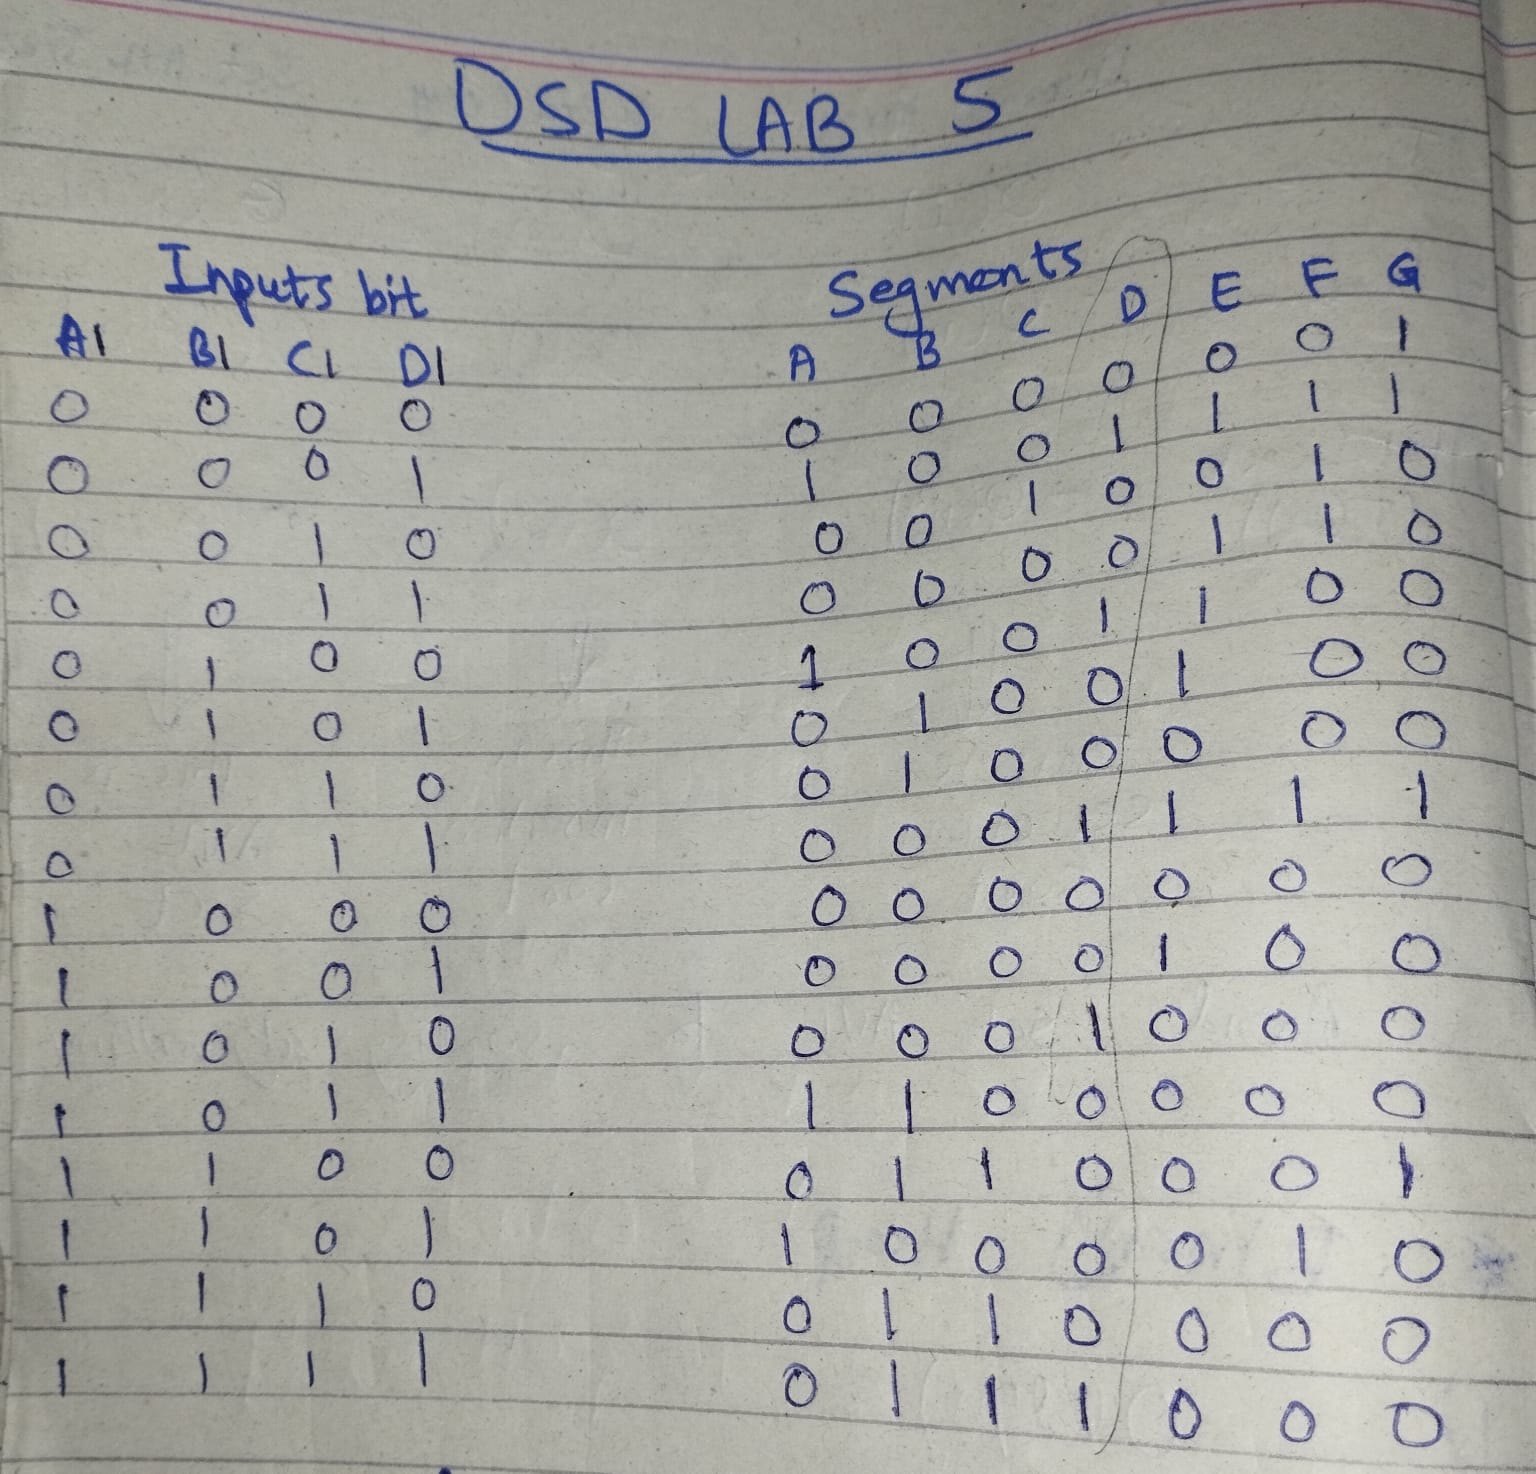 DSD LAB 5
Inputs bit Segments
A1 B1 C1 D1 A B C D E F G
0 0 0 0 0 0 0 0 0 0 1
0 0 0 1 1 0 0 1 1 1 1
0 0 1 0 0 0 1 0 0 1 0
0 0 1 1 0 0 0 0 1 1 0
0 1 0 0 1 0 0 1 1 0 0
0 1 0 1 0 1 0 0 1 0 0
0 1 1 0 0 1 0 0 0 0 0
0 1 1 1 0 0 0 1 1 1 1
1 0 0 0 0 0 0 0 0 0 0
1 0 0 1 0 0 0 0 1 0 0
1 0 1 0 0 0 0 1 0 0 0
1 0 1 1 1 1 0 0 0 0 0
1 1 0 0 0 1 1 0 0 0 1
1 1 0 1 1 0 0 0 0 1 0
1 1 1 0 0 1 1 0 0 0 0
1 1 1 1 0 1 1 1 0 0 0